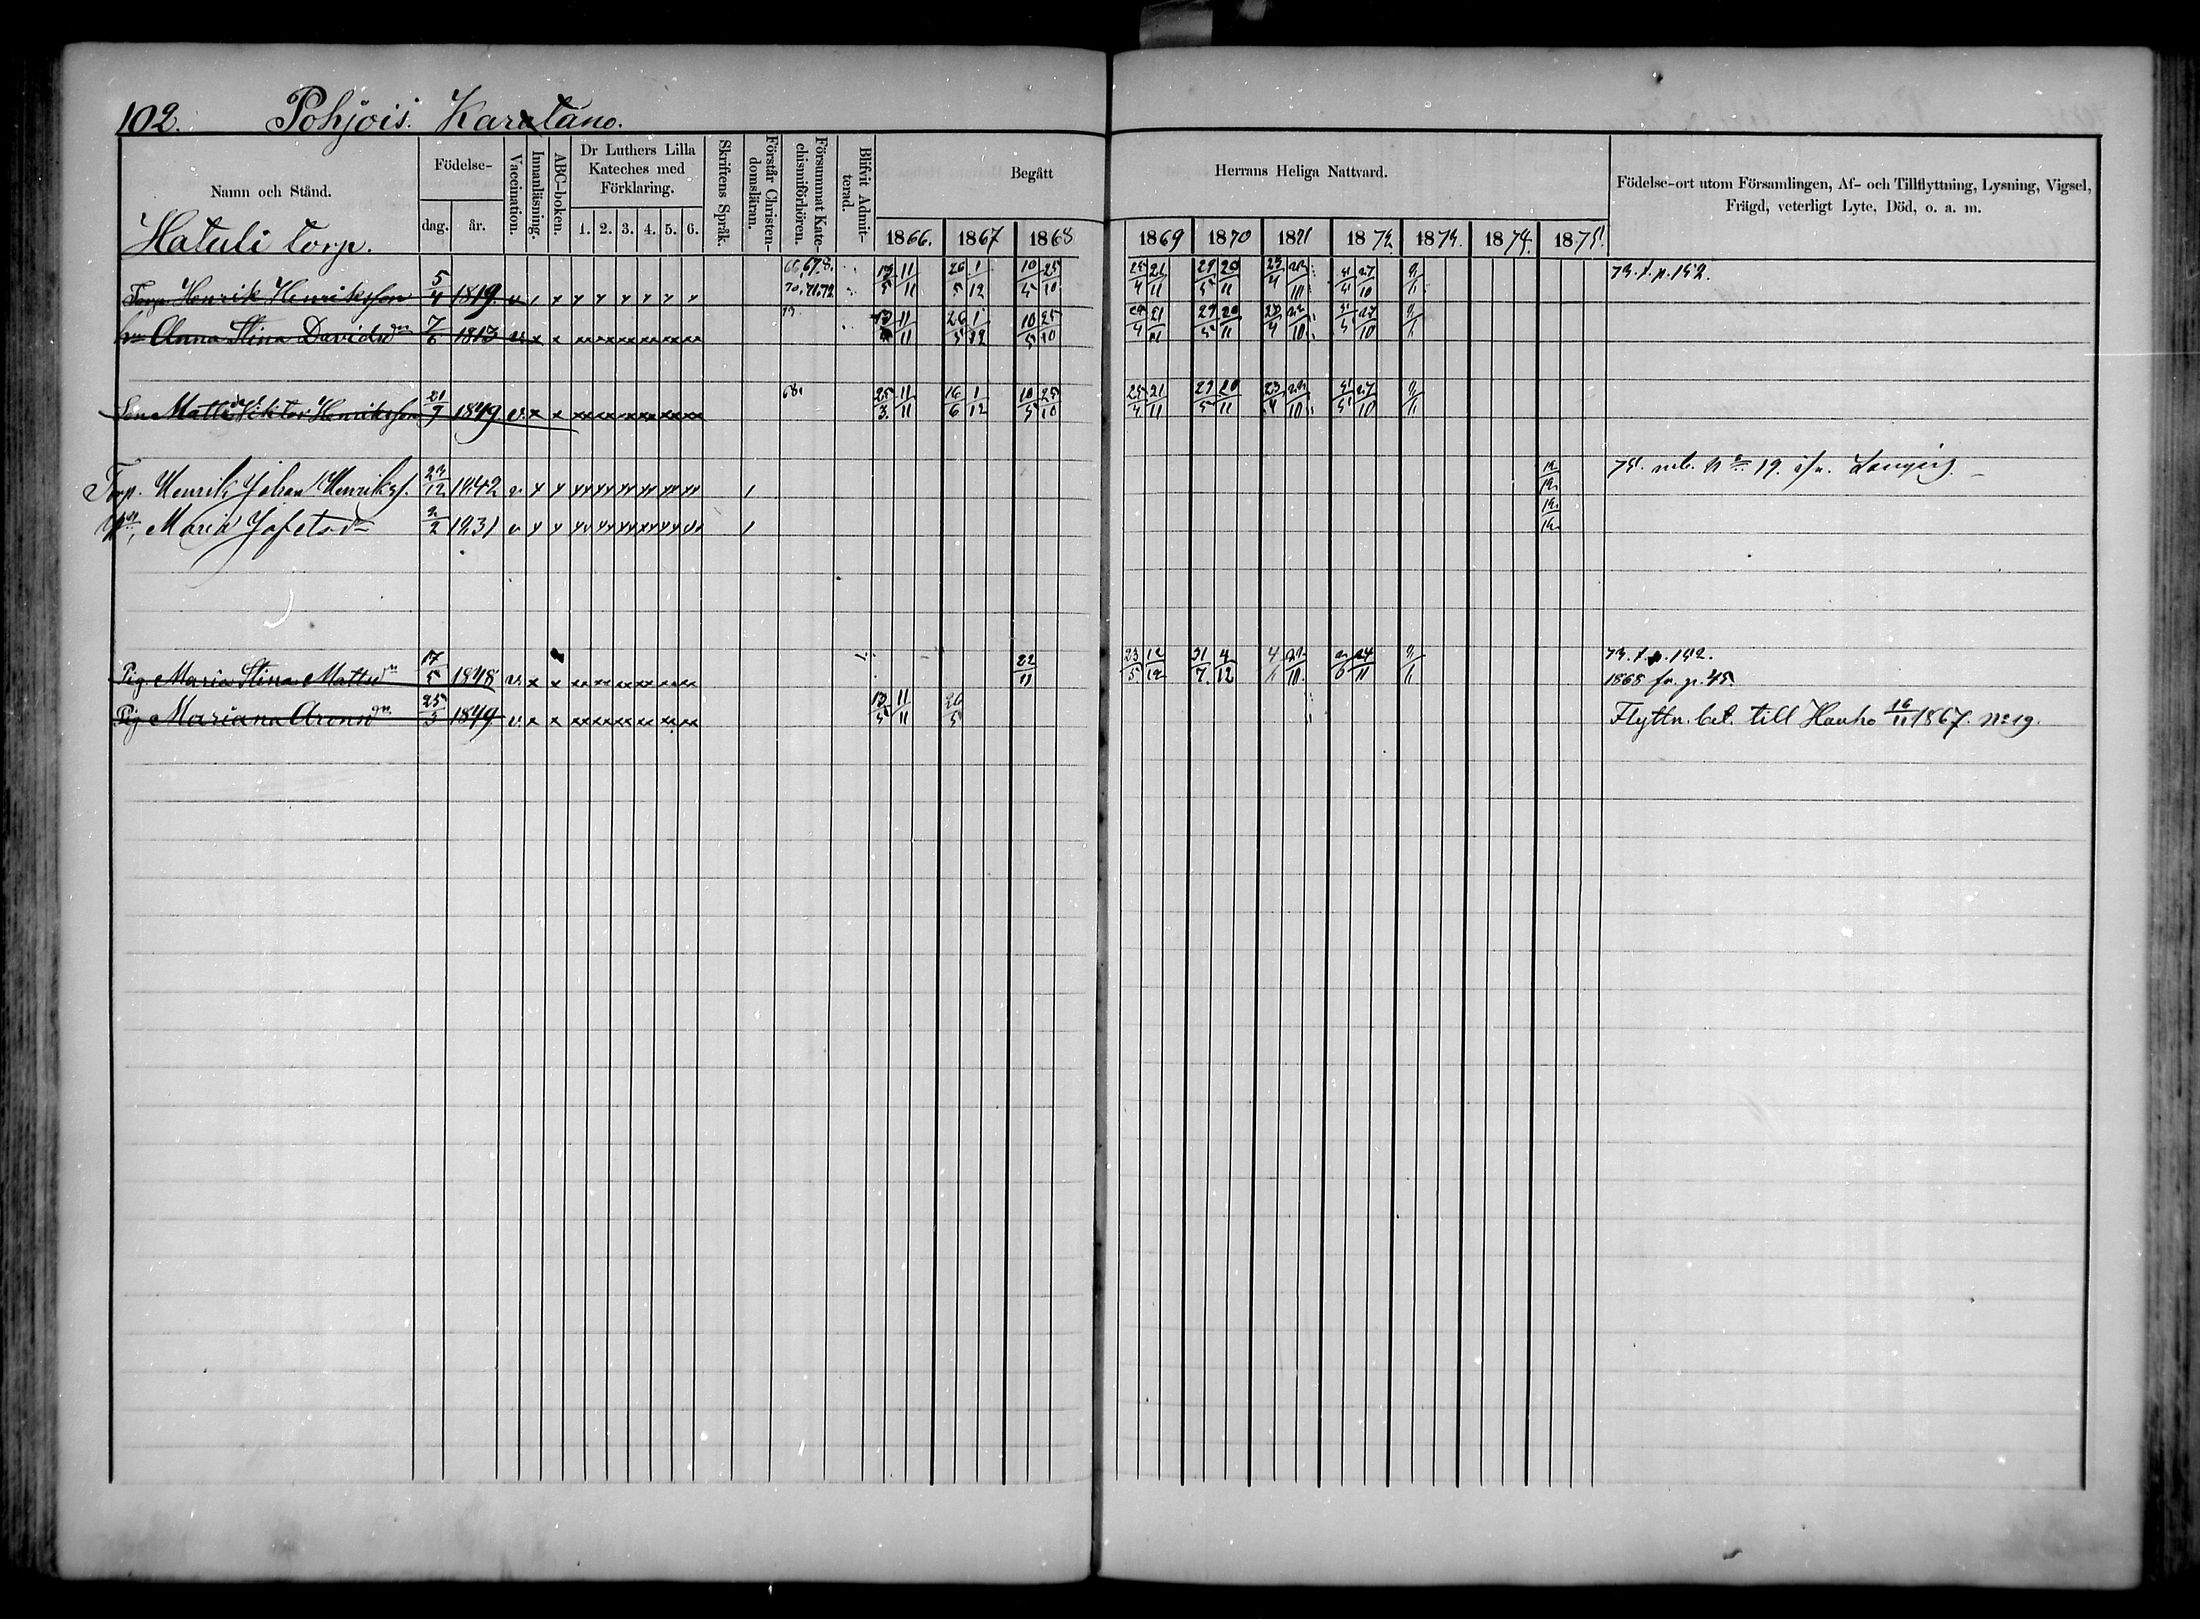 102. Pohjois. Karatano.
Namn och Stånd.
Födelse-
dag. år.
Vaccination.
Innanläsning.
ABC-boken.
Dr Luthers Lilla
Kateches med
Förklaring.
1. 2. 3. 4. 5. 6.
Skriftens Språk.
Förstår Christen-
domsläran.
Försummat Kate-
chismiförhören.
Blifvit Admit-
terad.
Begått Herrans Heliga Nattvard.
1866. 1867 1868 1869 1870 1871 1872. 1873. 1874. 1875.
Födelse-ort utom Församlingen, Af- och Tillflyttning, Lysning, Vigsel,
Frägd, veterligt Lyte, Död, o. a. m.
Hatuli torp.
Torp Henrik Henriksson 5/4 1819 v 66, 67, 8. 70, 71, 72. 11/11 26/5 1/12 10/5 25/10 21/11 29/5 20/11 23/4 27/10 73. t. p. 152.
hu Anna Stina Davidsdr 7/6 1813 v 11/11 26/5 1/12 10/5 25/10 21/11 29/5 20/11 23/4 27/10
Son Matts Viktor Henriksson 21/7 1849 v 68. 25/3 11/11 16/6 1/12 10/5 25/10 25/4 21/11 29/5 20/11 23/4 27/10
Torp. Henrik Johan Henrikss. 23/12 1842 v 75. mb. N 19. ifr.
Maria Jafetsdr 2/2 1831 v
Pig. Maria Stina Mattsdr 17/5 1848 v. 22/11 23/5 12/12 31/7 4/12 24/11 73. t. p. 152.
1868 fr. p. 45.
Pig Mariana Aronsdr 25/3 1849 v. 13/5 11/11 26/5 Flyttn. bet. till Hauho 16/11 1867. No 19.